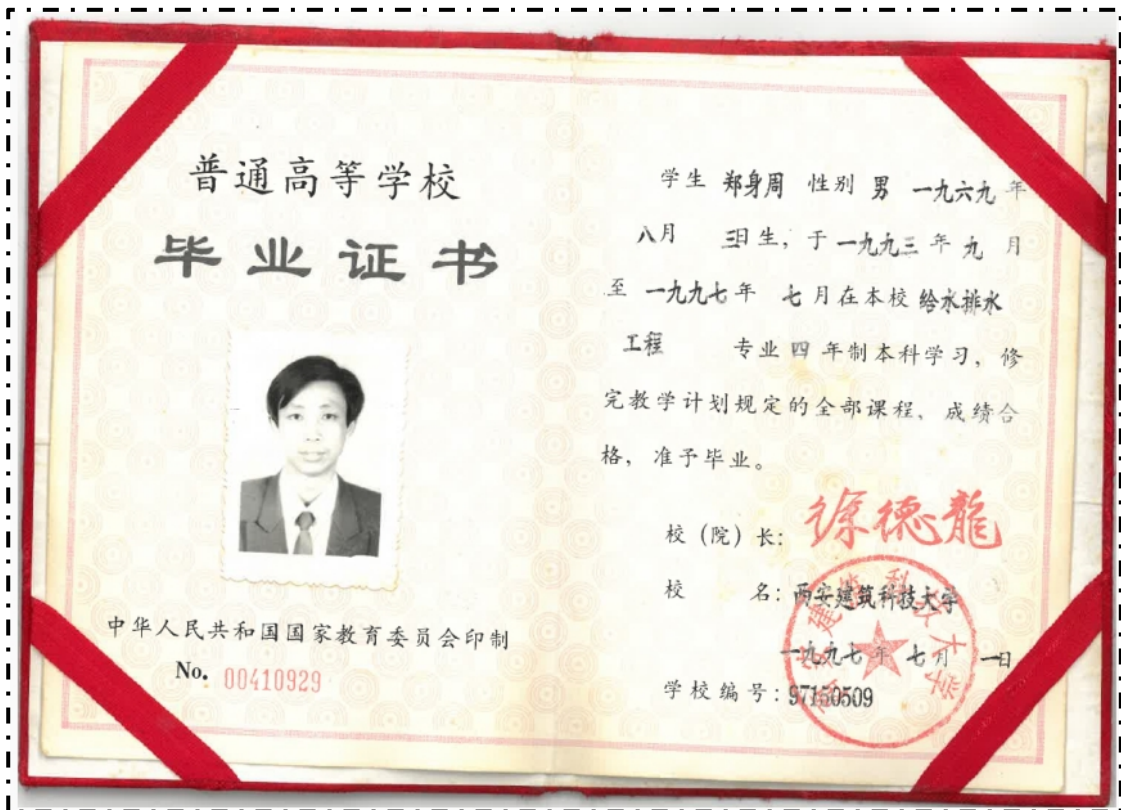 普通高等学校
毕业证书
中华人民共和国国家教育委员会印制
No. 00410929
学生 郑身周 性别 男 一九六九 年
八月 三日生，于 一九九三 年 九 月
至 一九九七 年 七 月在本校 给水排水
工程 专业 四 年制本科学习，修
完教学计划规定的全部课程、成绩合
格，准予毕业。
校（院）长：徐德龍
校 名：西安建筑科技大学
一九九七 年 七 月 一日
学校编号：97150509
西安建筑科技大学